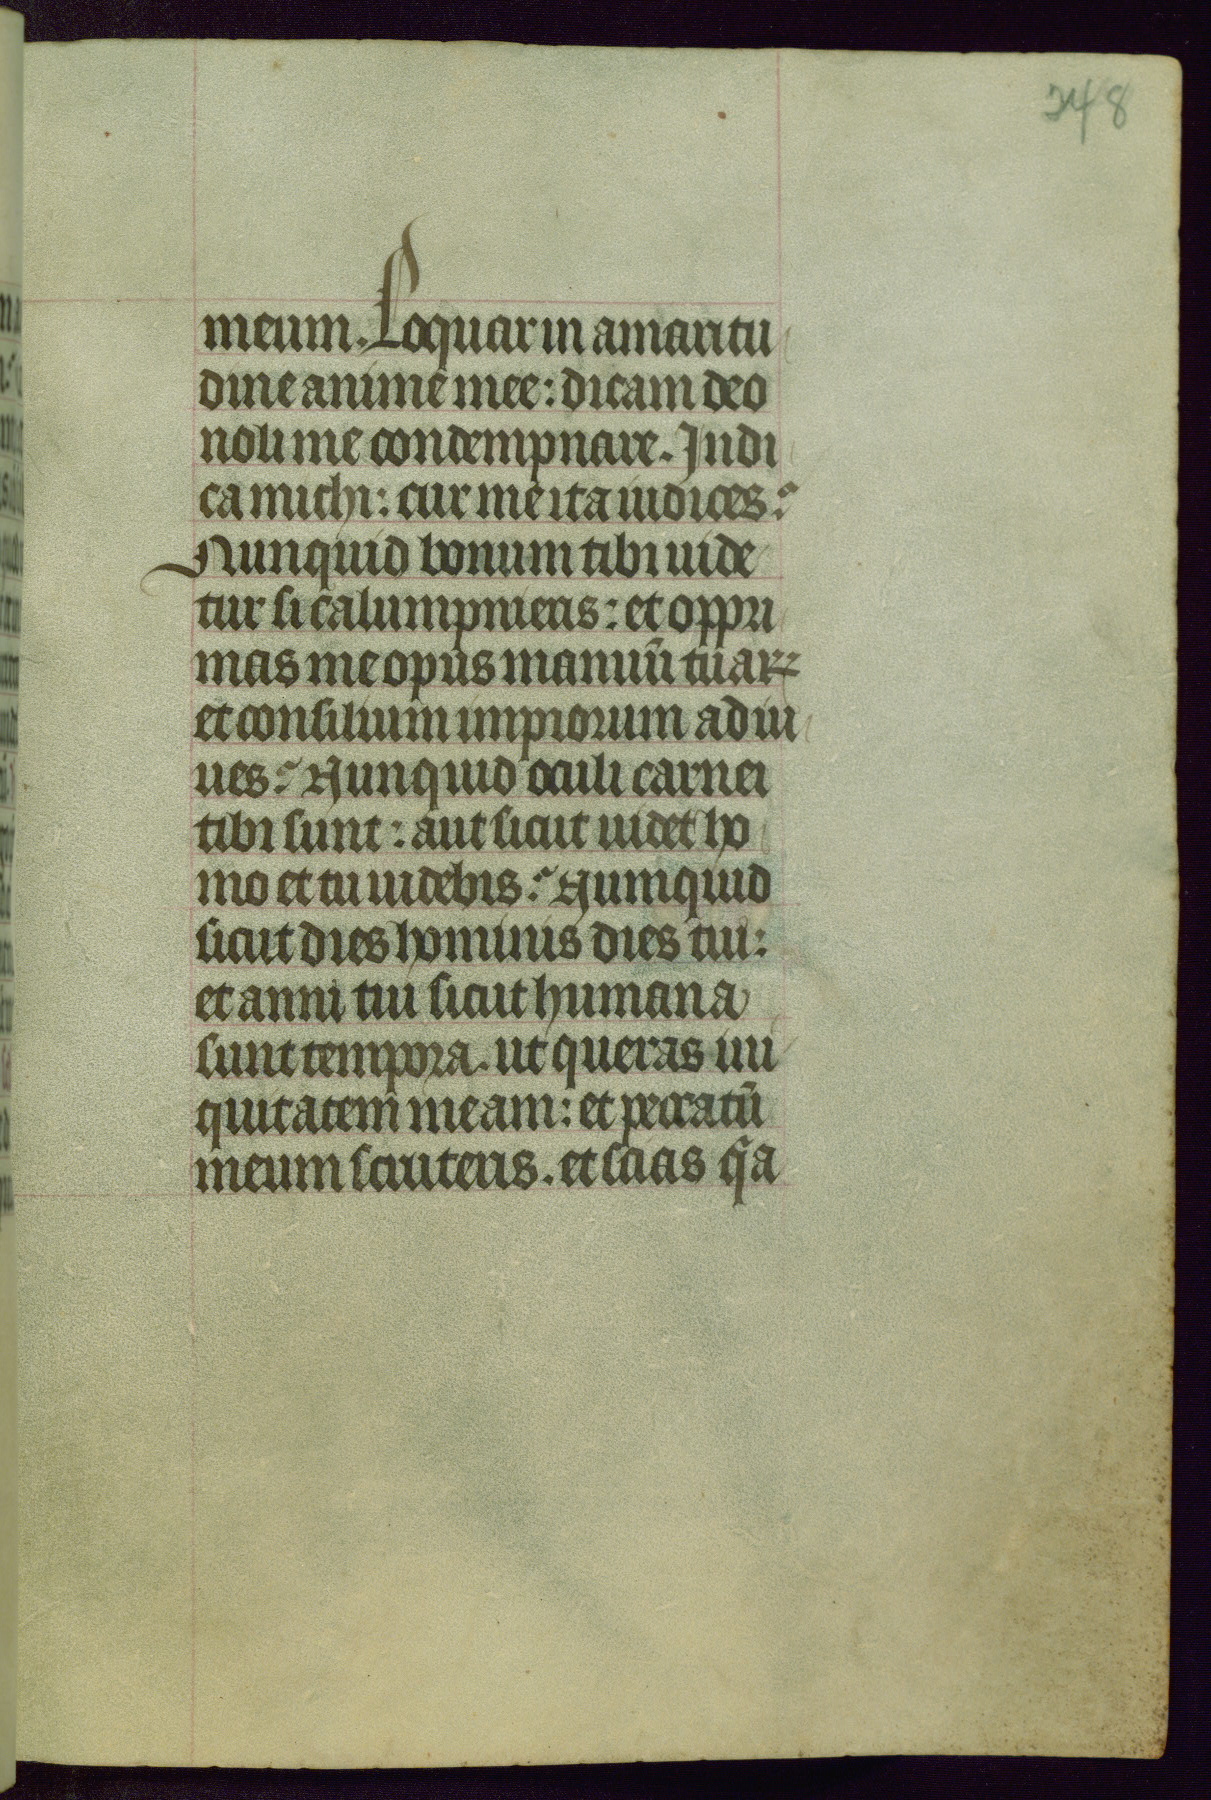 248
meum. Loquar in amaritu
dine anime mee: dicam deo
noli me condempnare. Indi
ca michi: cur me ita iudices?
Nunquid bonum tibi uide
tur si calumpnieris: et oppri
mas me opus manuū tuaꝝ
et consilium impiorum adiu
ues? Nunquid oculi carnei
tibi sunt: aut sicut uidet ho
mo et tu uidebis? Numquid
sicut dies hominis dies tui:
et anni tui sicut humana
sunt tempora. ut queras ini
quitatem meam: et peccatū
meum scruteris. et scias q̄a